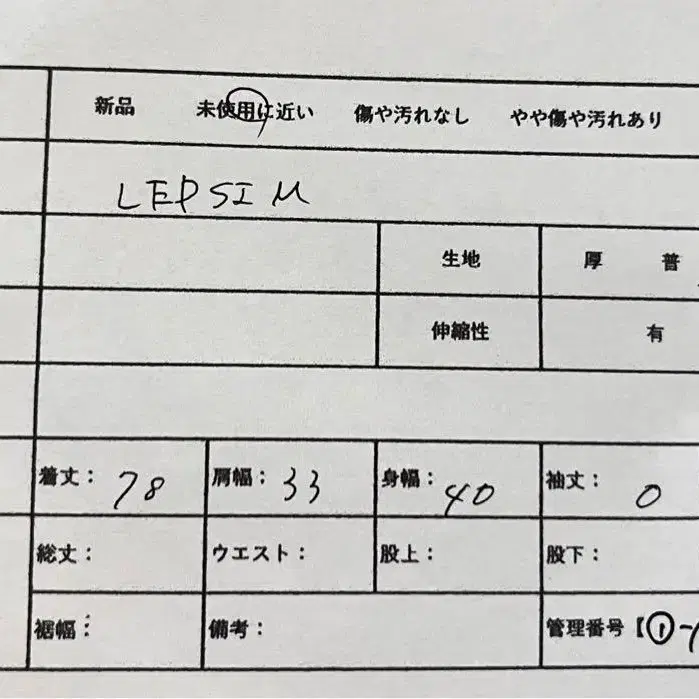 新品 未使用に近い 傷や汚れなし やや傷や汚れあり
LEPSIM
生地 厚 普
伸縮性 有
着丈: 78 肩幅: 33 身幅: 40 袖丈: 0
総丈: ウエスト: 股上: 股下:
裾幅: 備考: 管理番号【①-